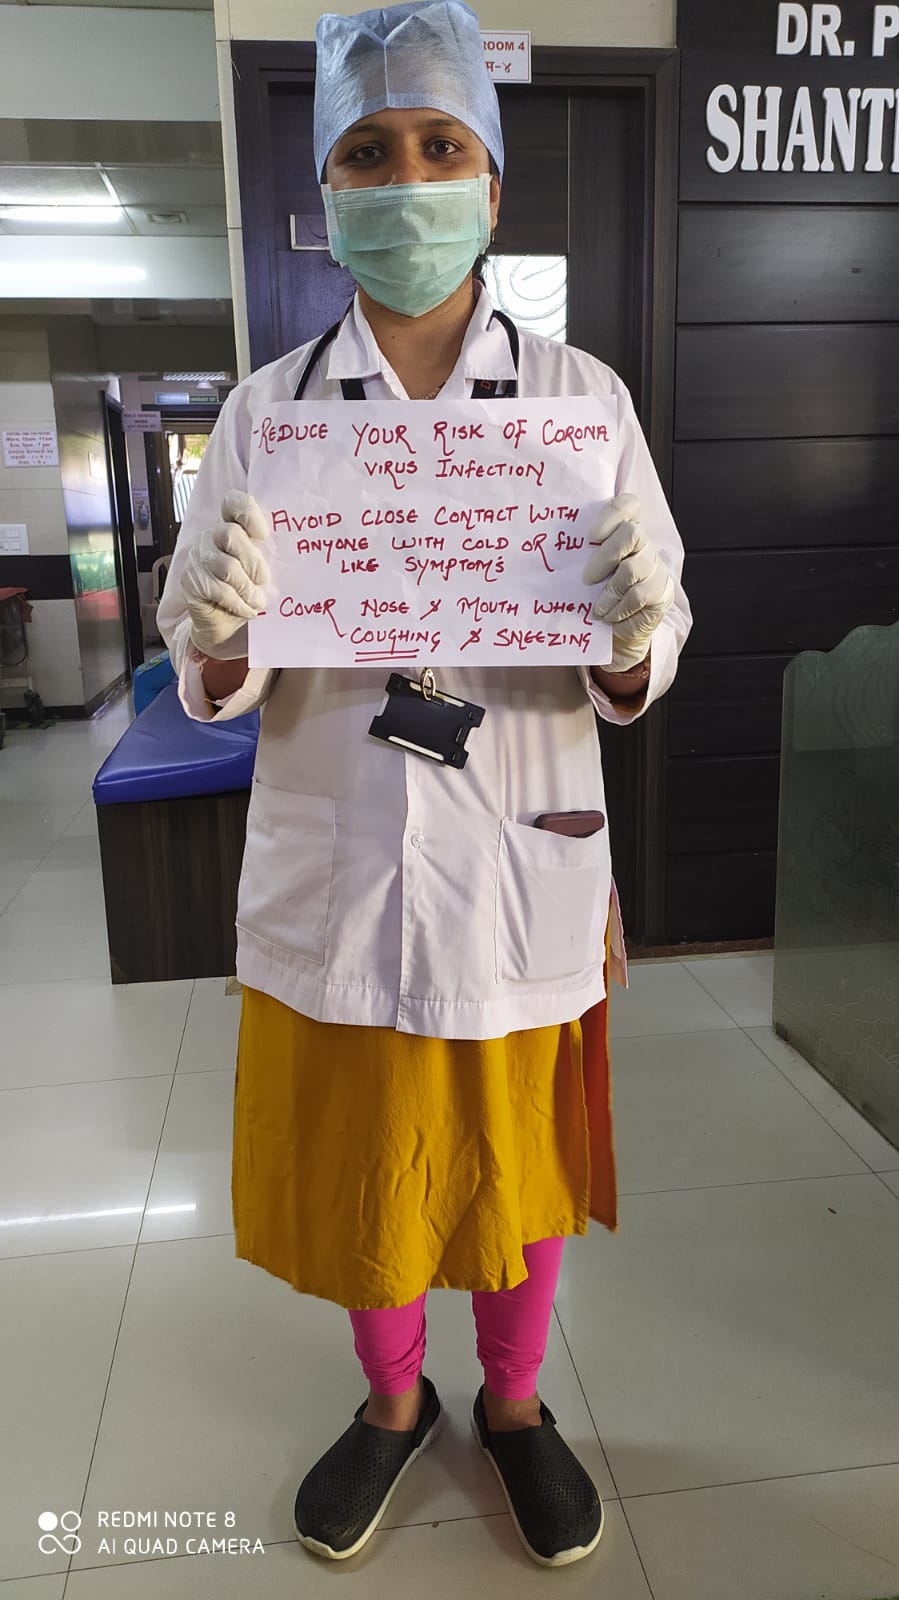 ROOM 4
DR. P
SHANTI
-REDUCE YOUR RISK OF CORONA
VIRUS INFECTION
AVOID CLOSE CONTACT WITH
ANYONE WITH COLD OR FLU-
LIKE SYMPTOMS
- COVER NOSE & MOUTH WHEN
COUGHING & SNEEZING
MALE GENERAL
WARD
REDMI NOTE 8
AI QUAD CAMERA